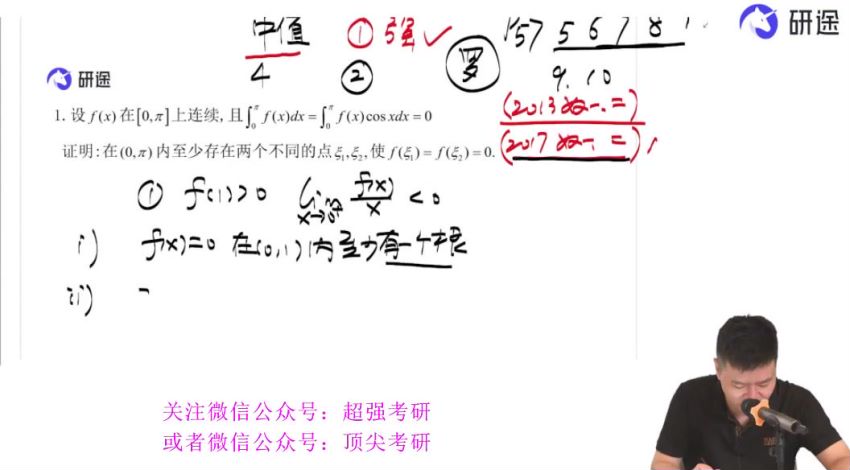 中值 ① 强 ✓ 157 5 6 7 8 1
研途
4 ② 罗 9.10
研途
1. 设 f(x) 在[0,π]上连续, 且∫₀^π f(x)dx = ∫₀^π f(x)cos xdx = 0
(2013数一.二)
证明: 在(0,π)内至少存在两个不同的点ξ₁,ξ₂, 使 f(ξ₁) = f(ξ₂) = 0.
(2017数一.二)
① f(1)>0 lim x→0⁺ f(x)/x < 0
i) f(x)=0 在(0,1)内至少有一个根
ii)
关注微信公众号：超强考研
或者微信公众号：顶尖考研